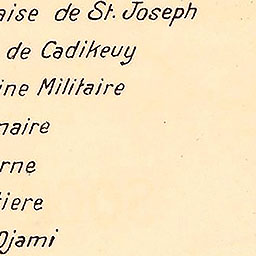 aise de St. Joseph
de Cadikeuy
ine Militaire
naire
rne
tiere
Djami